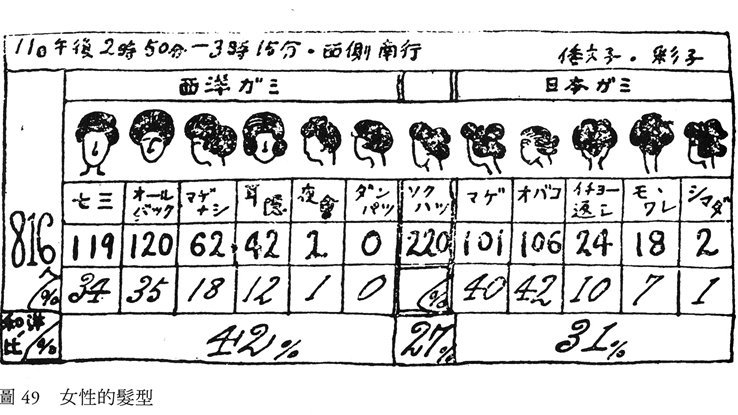 11日午後2時50分—3時15分・西側南行
倭文子・彩子
西洋ガミ 日本ガミ
七三 オールバック マゲナシ 耳隠 夜會 ダンパツ ソクハツ マゲ オバコ イチョー返シ モヽワレ シマダ
816 119 120 62 42 2 0 220 101 106 24 18 2
% 34 35 18 12 1 0 % 40 42 10 7 1
和洋比 % 42% 27% 31%
圖 49 女性的髮型